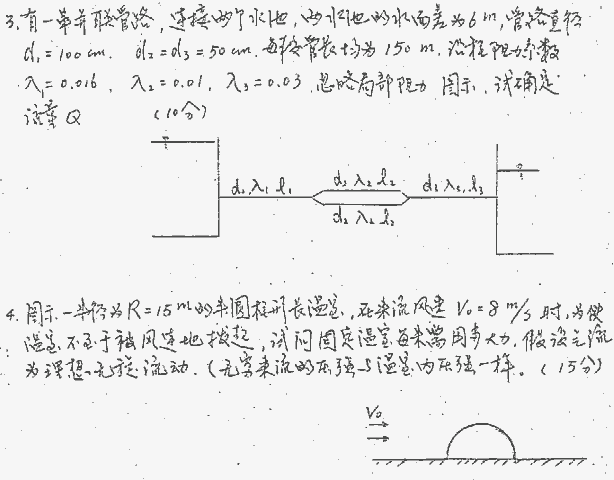 3.有一串并联管路，连接两个水池，两水池的水面差为6m，管路直径
d₁=100cm. d₂=d₃=50cm.每段管长均为150m，沿程阻力系数
λ₁=0.016，λ₂=0.01，λ₃=0.03.忽略局部阻力 图示，试确定
流量Q （10分）
d₁ λ₁ l₁
d₂ λ₂ l₂
d₂ λ₂ l₂
d₃ λ₃ l₃
4.图示一半径为R=15m的半圆柱形长温室，在来流风速V₀=8m/s时，为使
温室不至于被风连地拔起，试问固定温室每米需用多大力，假设气流
为理想无旋流动.（无穷来流的压强与温室内压强一样。（15分）
V₀